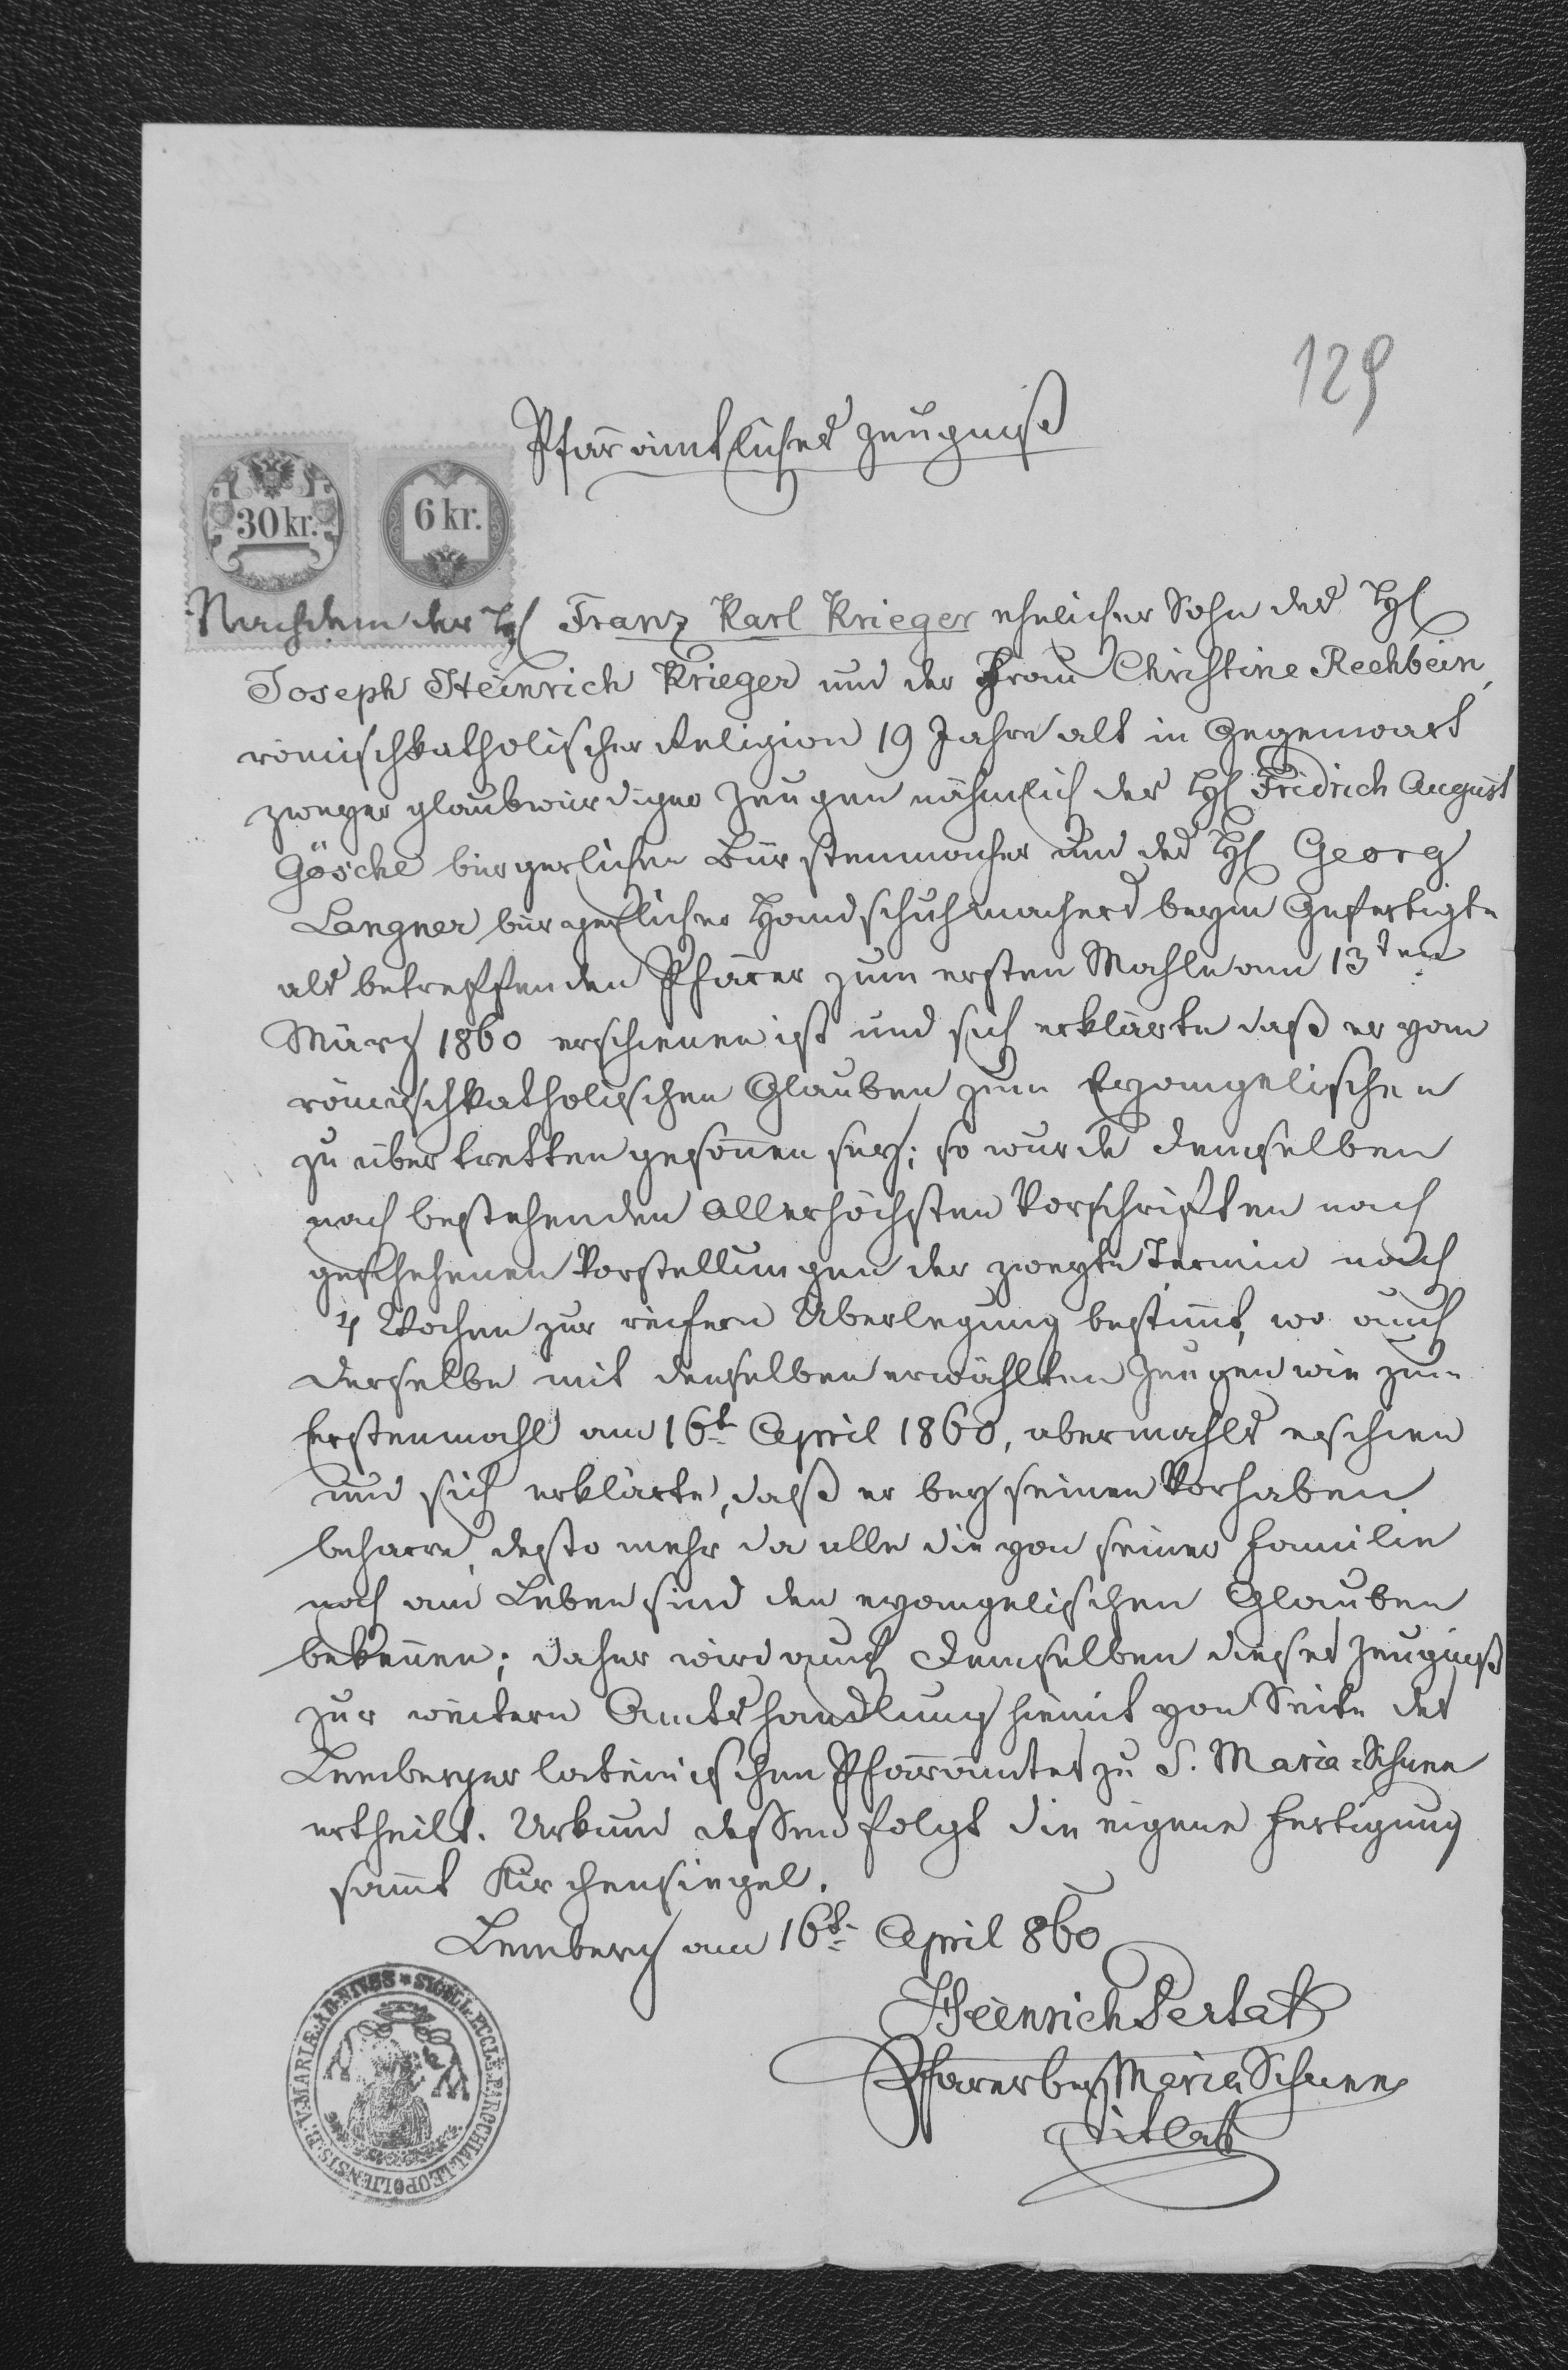 129
Pfarrämtliches Zeugniß
30 kr.
6 kr.
Nachdem der H. Franz Karl Krieger ehelicher Sohn des H.
Joseph Heinrich Krieger und der Frau Christine Rechbein,
römischkatholischer Religion 19 Jahre alt in Gegenwart
zweyer glaubwürdiger Zeugen nähmlich des H. Fridrich August
Gösche bürgerlichen Bürstenmacher und des H. Georg
Langner bürgerlicher Handschuhmachers beym Gefertigte
als betreffenden Pfarer zum ersten Mahle am 13ten
März 1860 erschienen ist und sich erklärte daß er vom
römischkatholischen Glauben zum Evangelischen
zu übertretten gesonen sey; so wurde demselben
nach bestehenden Allerhöchsten Vorschriften nach
geschehenen Vorstellungen der zweyte Termin nach
4 Wochen zur reifern Überlegung bestimt, wo auch
derselbe mit denselben erwählten Zeugen wie zum
Erstenmahl am 16t April 1860, abermahls erschien
und sich erklärte, daß er bey seinen Vorhaben
beharre, desto mehr da alle die von seiner Familie
noch am Leben sind den evangelischen Glauben
bekenen; daher wird auch demselben dieses Zeugniß
zur weitern Amtshandlung hiemit von Seite des
Lemberger lateinischen Pfarramtes zu S. Maria-Schnee
ertheilt. Urkund dessen folgt die eigene Fertigung
samt Kirchensiegel.
Lemberg am 16t April 860
Heinrich
Pfarer bey Maria Schnee
SIGILL. ECCLE. PAROCHIAL. LEOPOLIENSIS. B. V. MARIÆ. AD. NIVES